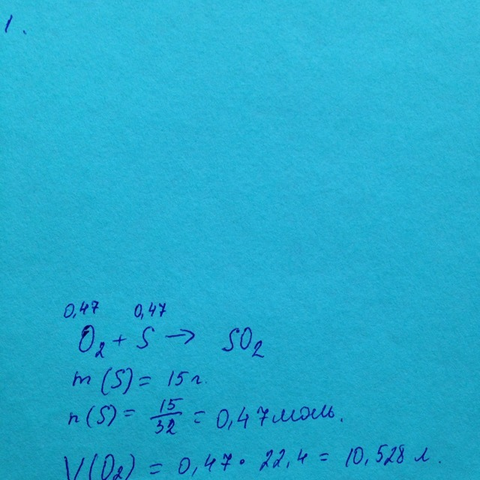 1.
0,47 0,47
O₂ + S → SO₂
m (S) = 15 г.
n (S) = 15/32 = 0,47 моль.
V(O₂) = 0,47 · 22,4 = 10,528 л.